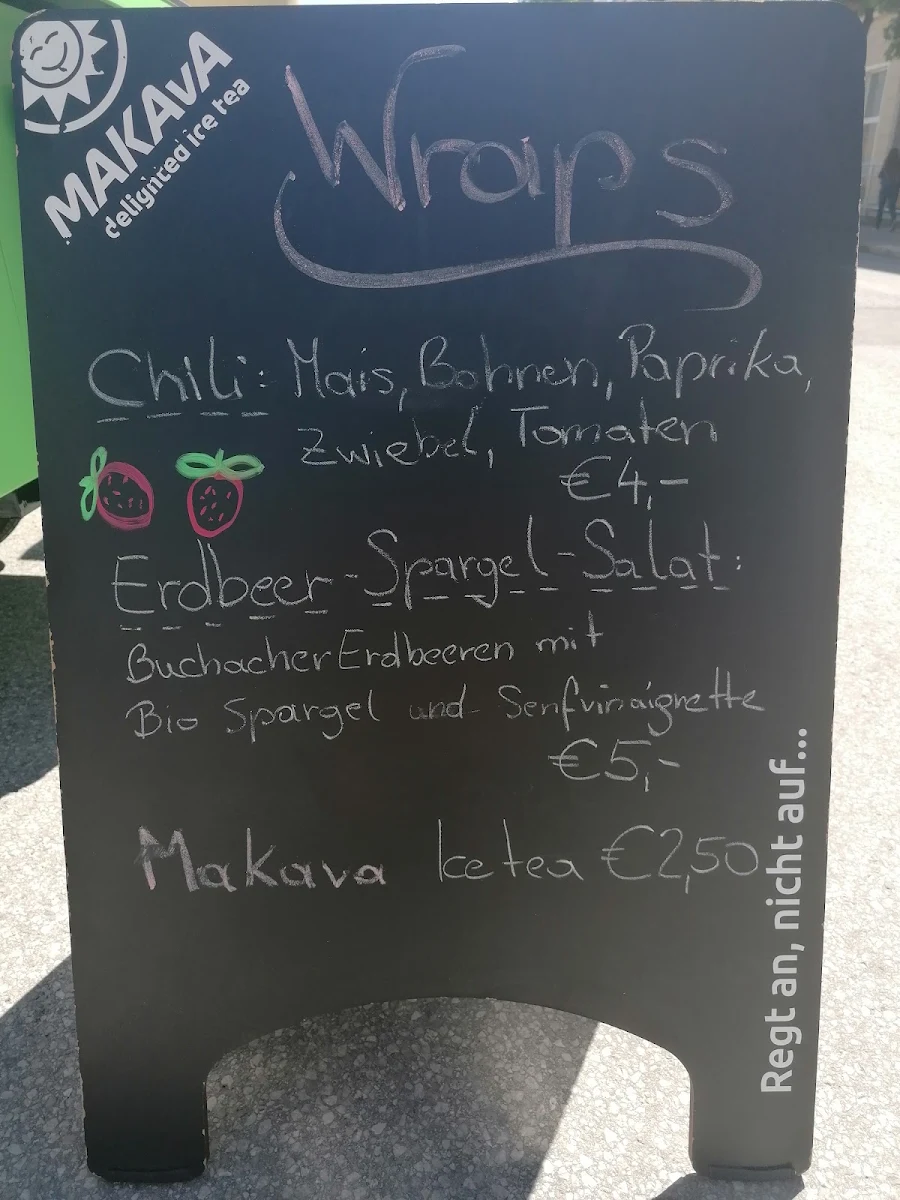 MAKAvA
delighted ice tea
Wraps
Chili: Mais, Bohnen, Paprika,
Zwiebel, Tomaten
€4,-
Erdbeer-Spargel-Salat:
Buchacher Erdbeeren mit
Bio Spargel und Senfvinaigrette
€5,-
Makava Ice tea €2,50
Regt an, nicht auf...